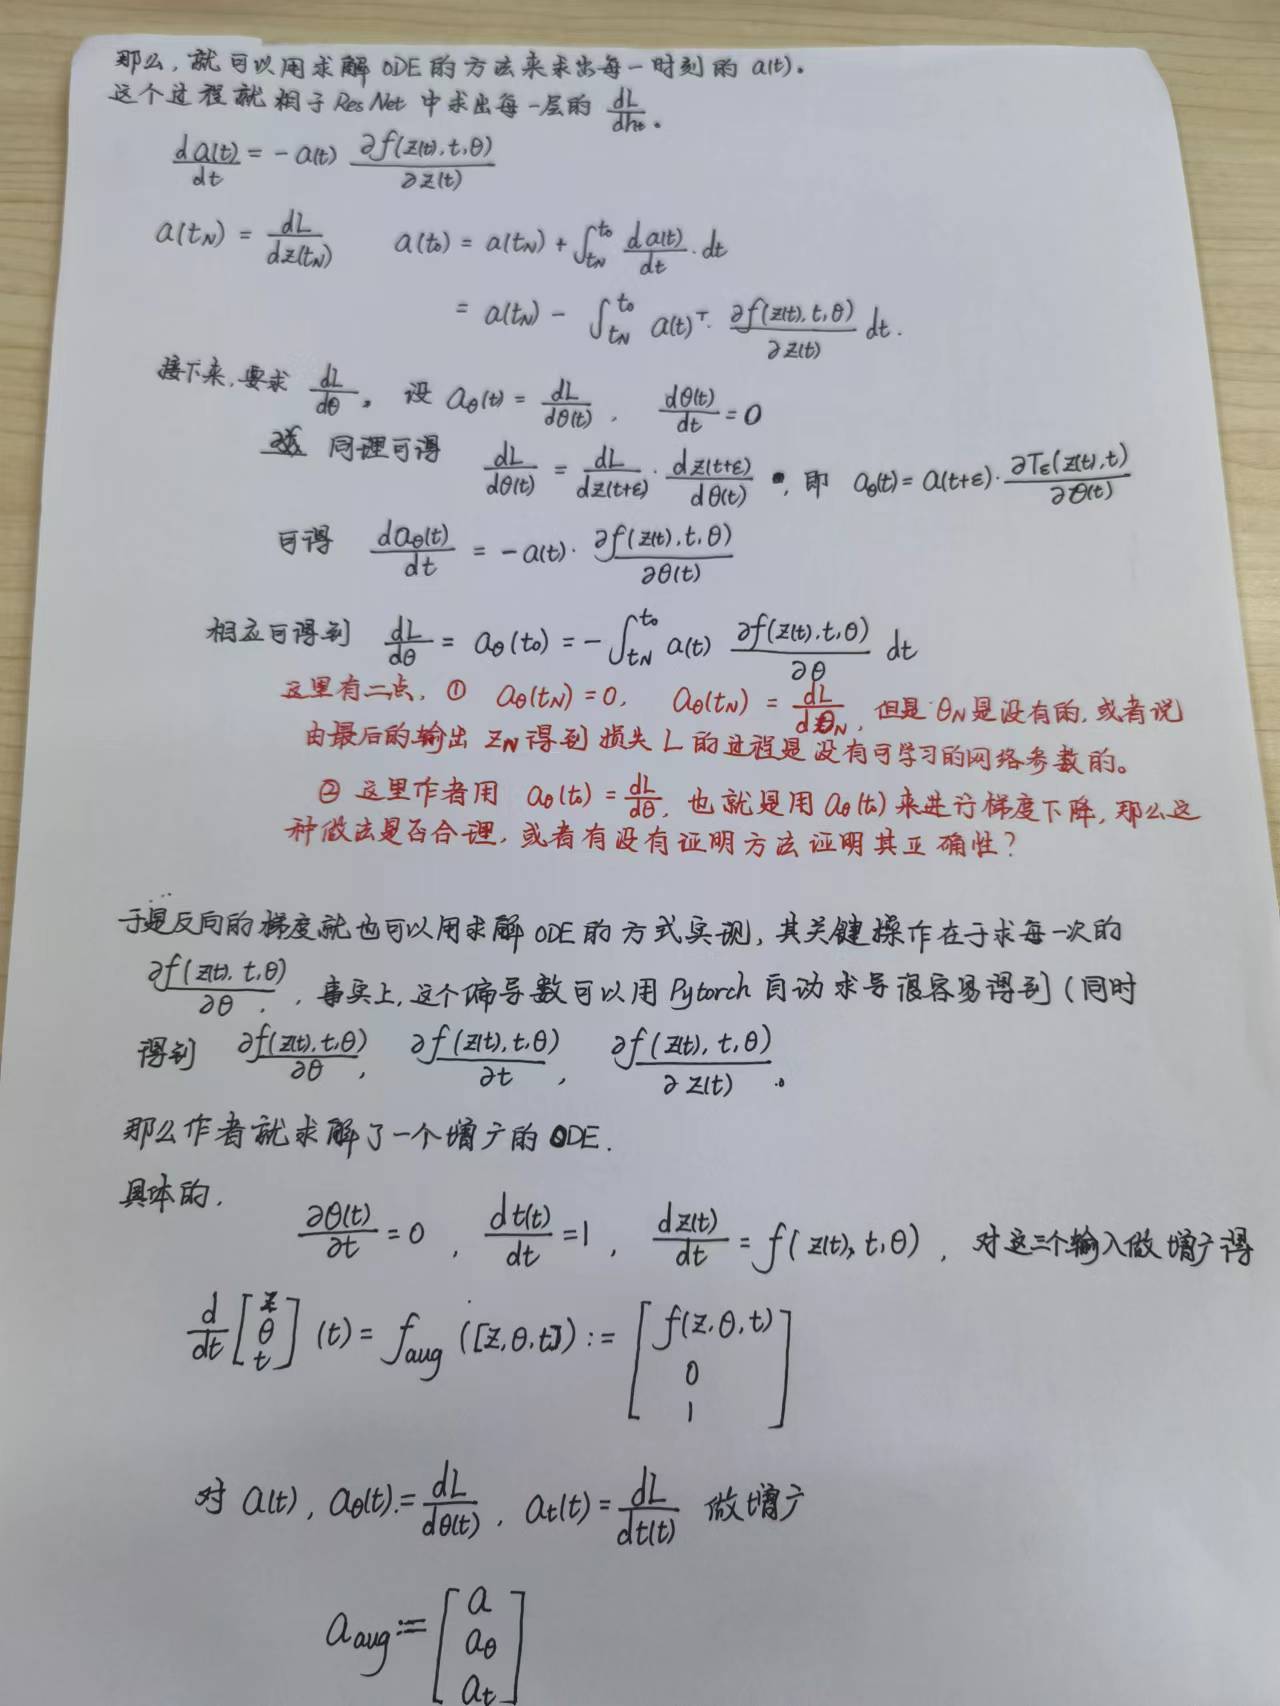 那么，就可以用求解ODE的方法来求出每一时刻的 a(t)。
这个过程就相于ResNet中求出每一层的 dL/dht。
da(t)/dt = -a(t) ∂f(z(t),t,θ)/∂z(t)
a(tN) = dL/dz(tN)   a(t0) = a(tN) + ∫_{tN}^{t0} da(t)/dt · dt
= a(tN) - ∫_{tN}^{t0} a(t)^T · ∂f(z(t),t,θ)/∂z(t) dt.
接下来，要求 dL/dθ。设 aθ(t) = dL/dθ(t), dθ(t)/dt = 0
同理可得 dL/dθ(t) = dL/dz(t+ε) · dz(t+ε)/dθ(t)，即 aθ(t) = a(t+ε) · ∂Tε(z(t),t)/∂θ(t)
可得 daθ(t)/dt = -a(t) · ∂f(z(t),t,θ)/∂θ(t)
相应可得到 dL/dθ = aθ(t0) = -∫_{tN}^{t0} a(t) ∂f(z(t),t,θ)/∂θ dt
这里有二点，① aθ(tN) = 0, aθ(tN) = dL/dθN, 但是 θN 是没有的，或者说
由最后的输出 zN 得到 损失 L 的过程是没有可学习的网络参数的。
② 这里作者用 aθ(t0) = dL/dθ，也就是用 aθ(t0) 来进行梯度下降，那么这
种做法是否合理，或者有没有证明方法证明其正确性？
于是反向的梯度就也可以用求解ODE的方式实现，其关键操作在于求每一次的
∂f(z(t),t,θ)/∂θ，事实上，这个偏导数可以用Pytorch自动求导很容易得到（同时
得到 ∂f(z(t),t,θ)/∂θ, ∂f(z(t),t,θ)/∂t, ∂f(z(t),t,θ)/∂z(t)。
那么作者就求解了一个增广的ODE.
具体的，
∂θ(t)/∂t = 0, dt(t)/dt = 1, dz(t)/dt = f(z(t),t,θ)，对这三个输入做增广得
d/dt [z θ t] (t) = f_aug([z,θ,t]) := [f(z,θ,t) 0 1]
对 a(t), aθ(t) := dL/dθ(t), at(t) = dL/dt(t) 做增广
a_aug := [a aθ at]